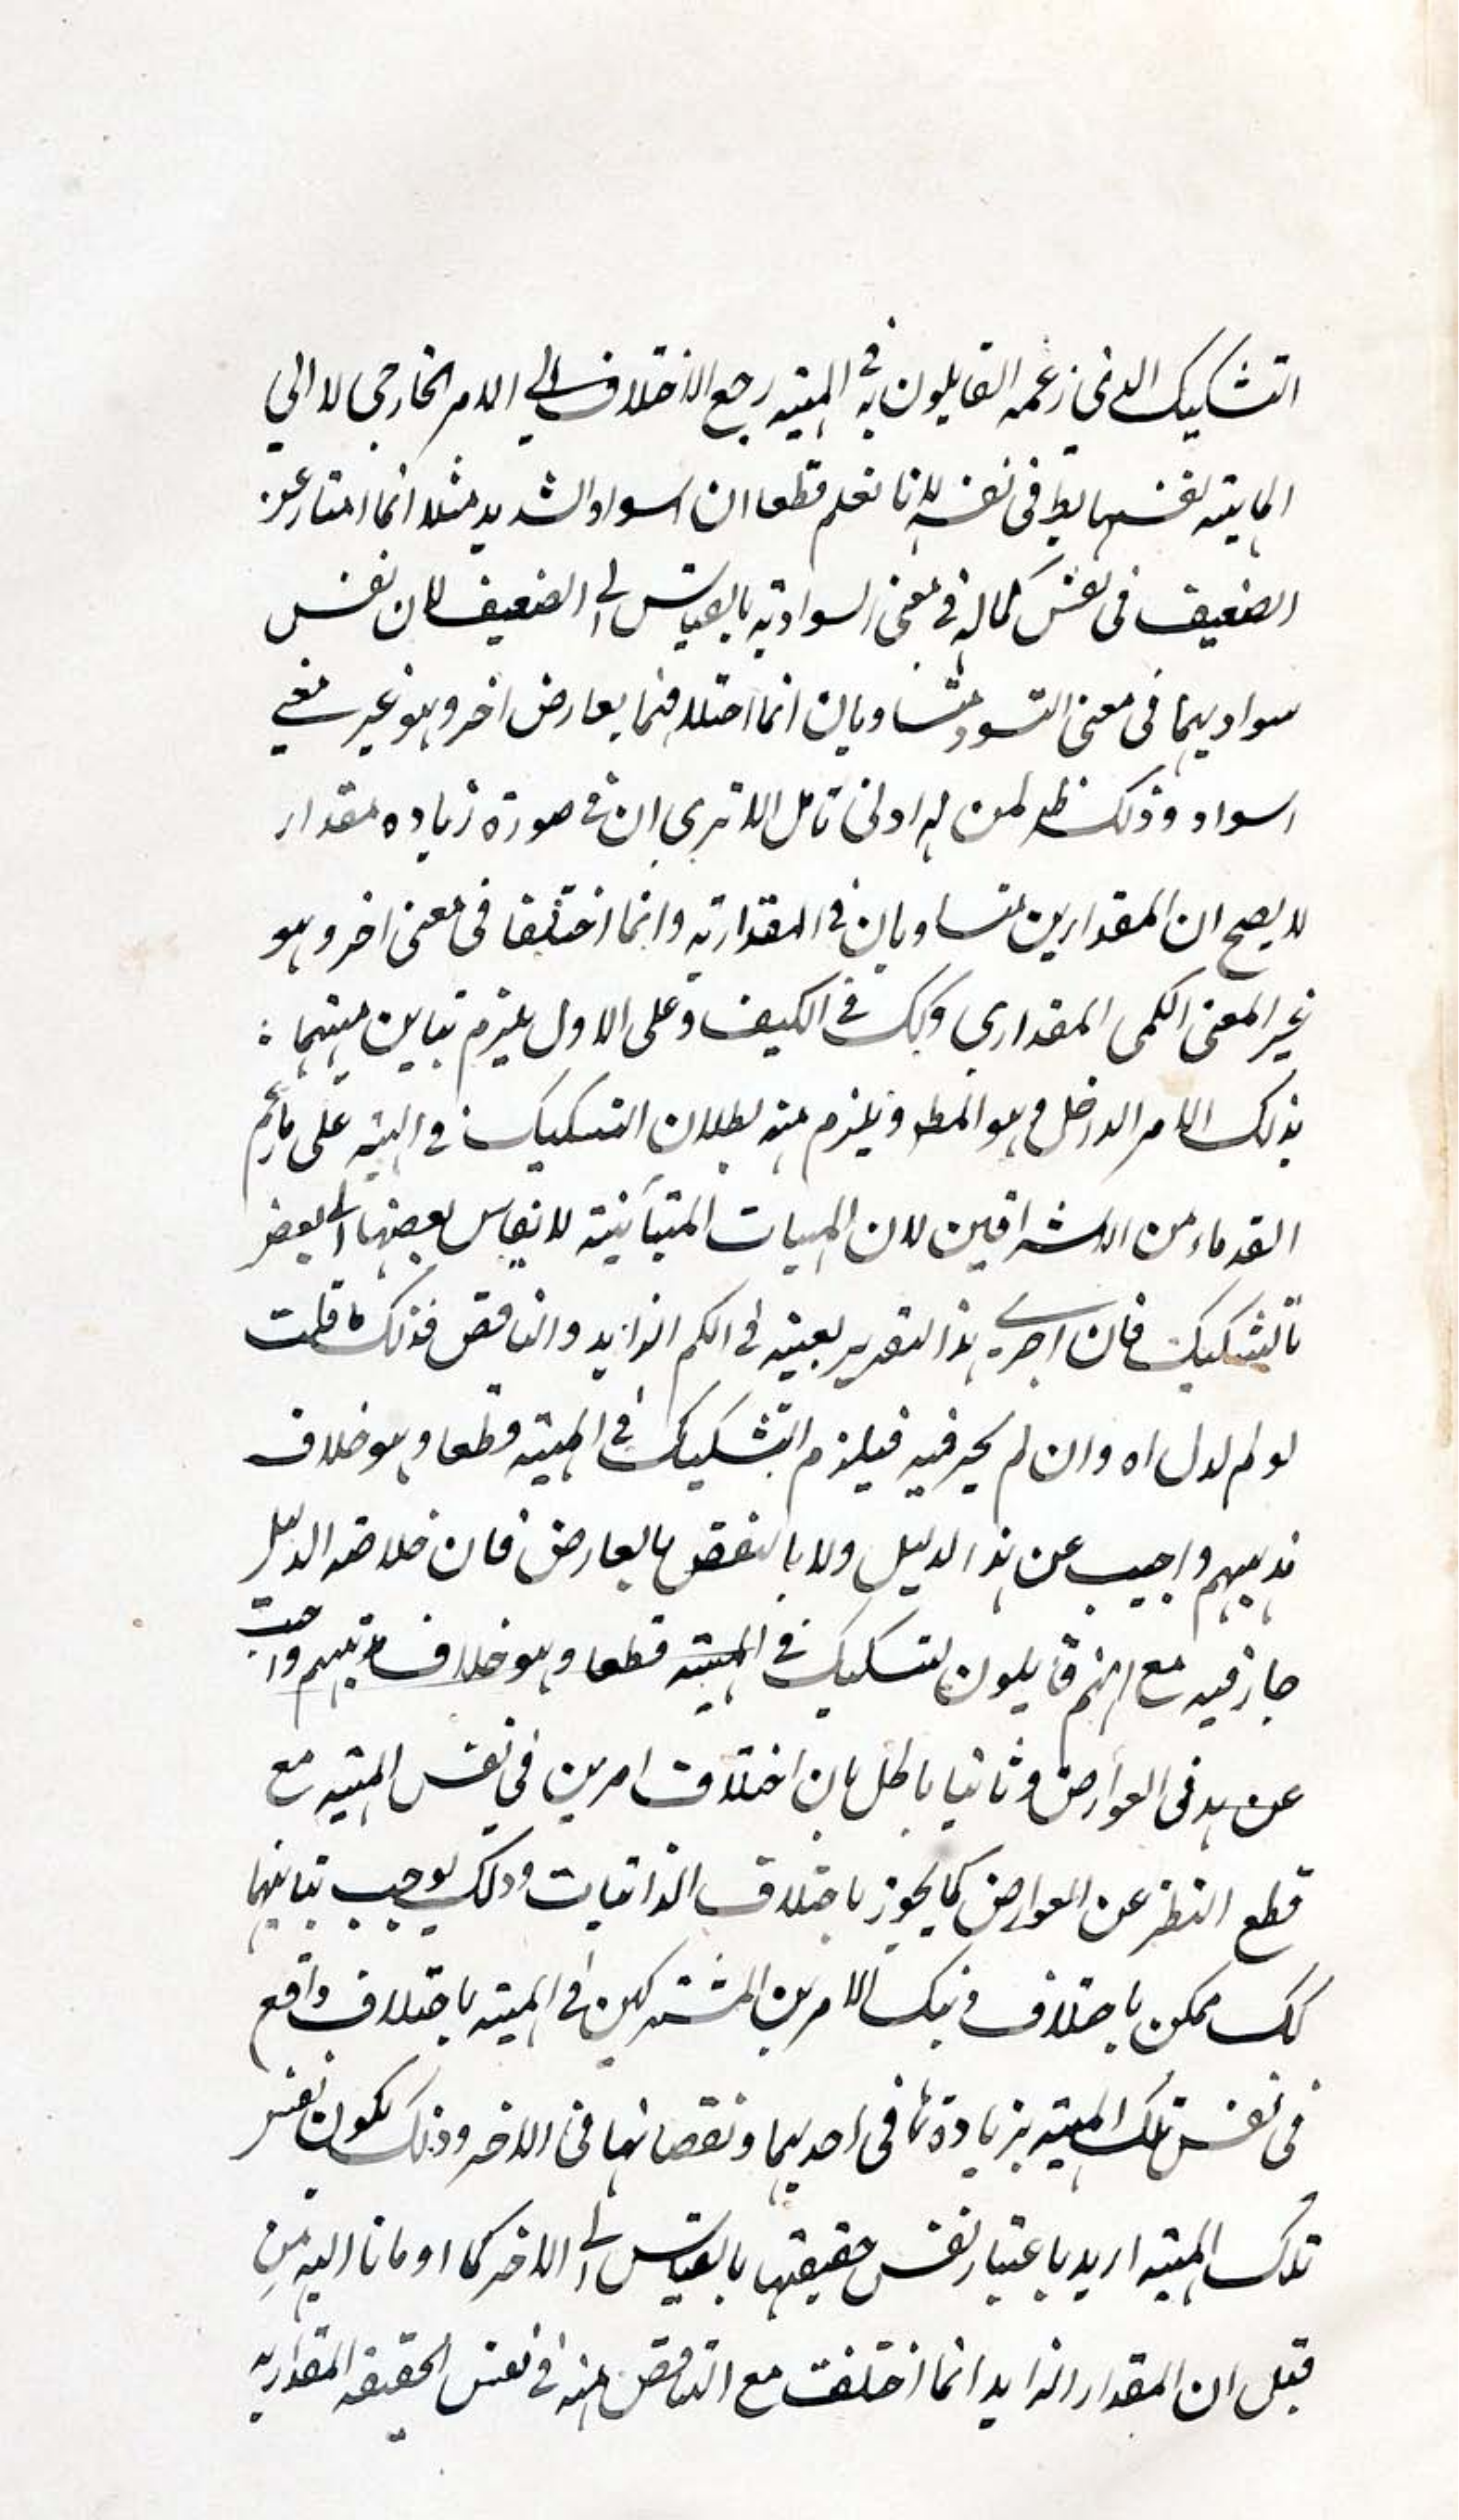 التشكيك الذي زعمه القايلون به في المهية رجع الاختلاف الي الامر الخارجي لا الي
الماهية نفسها بط في نفسه لانا نعلم قطعا ان اسواد الشديد مثلا انما امتاز عن
الضعيف في نفس كماله في معنى السوادية بالقياس الى الضعيف لا ان نفس
سواديهما في معنى التسود متساويان انما اختلافهما بعارض اخر وهو غير معني
اسواد وذلك ظ لمن له ادنى تامل الا ترى ان في صورة زياده مقدار
لا يصح ان المقدارين متساويان في المقدارية وانما اختلفا في معنى اخر وهو
غير المعنى الكمي المقداري وكك في الكيف وعلى الاول يلزم تباين مهيتهما
بذلك الامر الداخل وهو المط ويلزم منه بطلان التسكيك في المهية على ما زعم
القدماء من الاشراقين لان المهيات المتباينة لا يقاس بعضها الى بعض
بالتشكيك فان اجرى هذا التقرير بعينه في الكم الزايد والناقص فذلك ما قلت
لو لم لدل اه وان لم يجر فيه فيلزم التشكيك في المهية قطعا وهو خلاف
مذهبهم واجيب عن هذا الدليل ولا بالنقض بالعارض فان خلاصه الدليل
جاز فيه مع انهم قايلون لتسكيك في المهية قطعا وهو خلاف مذهبهم واجيب
عن هد في العوارض وثانيا باطل بان اختلاف امرين في نفس المهية مع
قطع النظر عن العوارض كما يجوز باختلاف الذاتيات وذلك يوجب تباينهما
كك ممكن باختلاف ذينك الامرين المشتركين في المهية باختلاف واقع
في نفس تلك المهية بزيادة ما في احديهما ونقصانها في الاخر وذلك بكون نفس
تلك المهية ازيد باعتبار نفس حقيقتها بالقياس الى الاخر كما اومانا اليه من
قبل ان المقدار الزايد انما اختلفت مع الناقص منه في نفس الحقيقه المقداريه